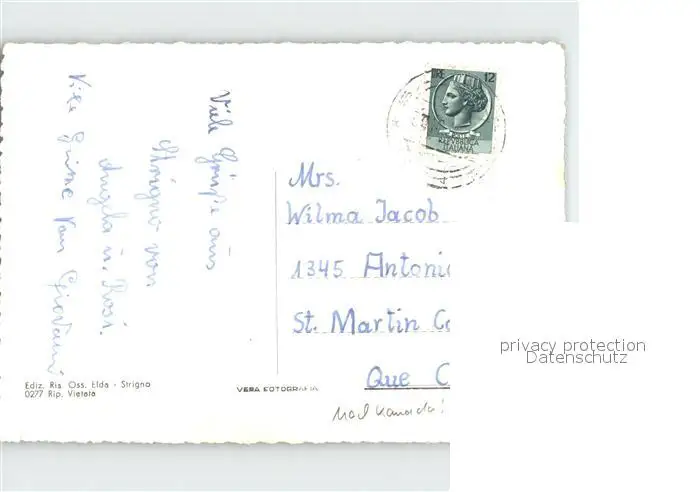 Viele Grüße aus
Strigno von
Angela u. Rosi.
Viele Grüsse von Giovanni
LIRE 12
REPVBBLICA
ITALIANA
Mrs.
Wilma Jacob
1345 Antoni
St. Martin C
Que C
Ediz. Ris. Oss. Elda - Strigno
0277 Rip. Vietata
VERA FOTOGRAFIA
nach Kanada!
privacy protection
Datenschutz